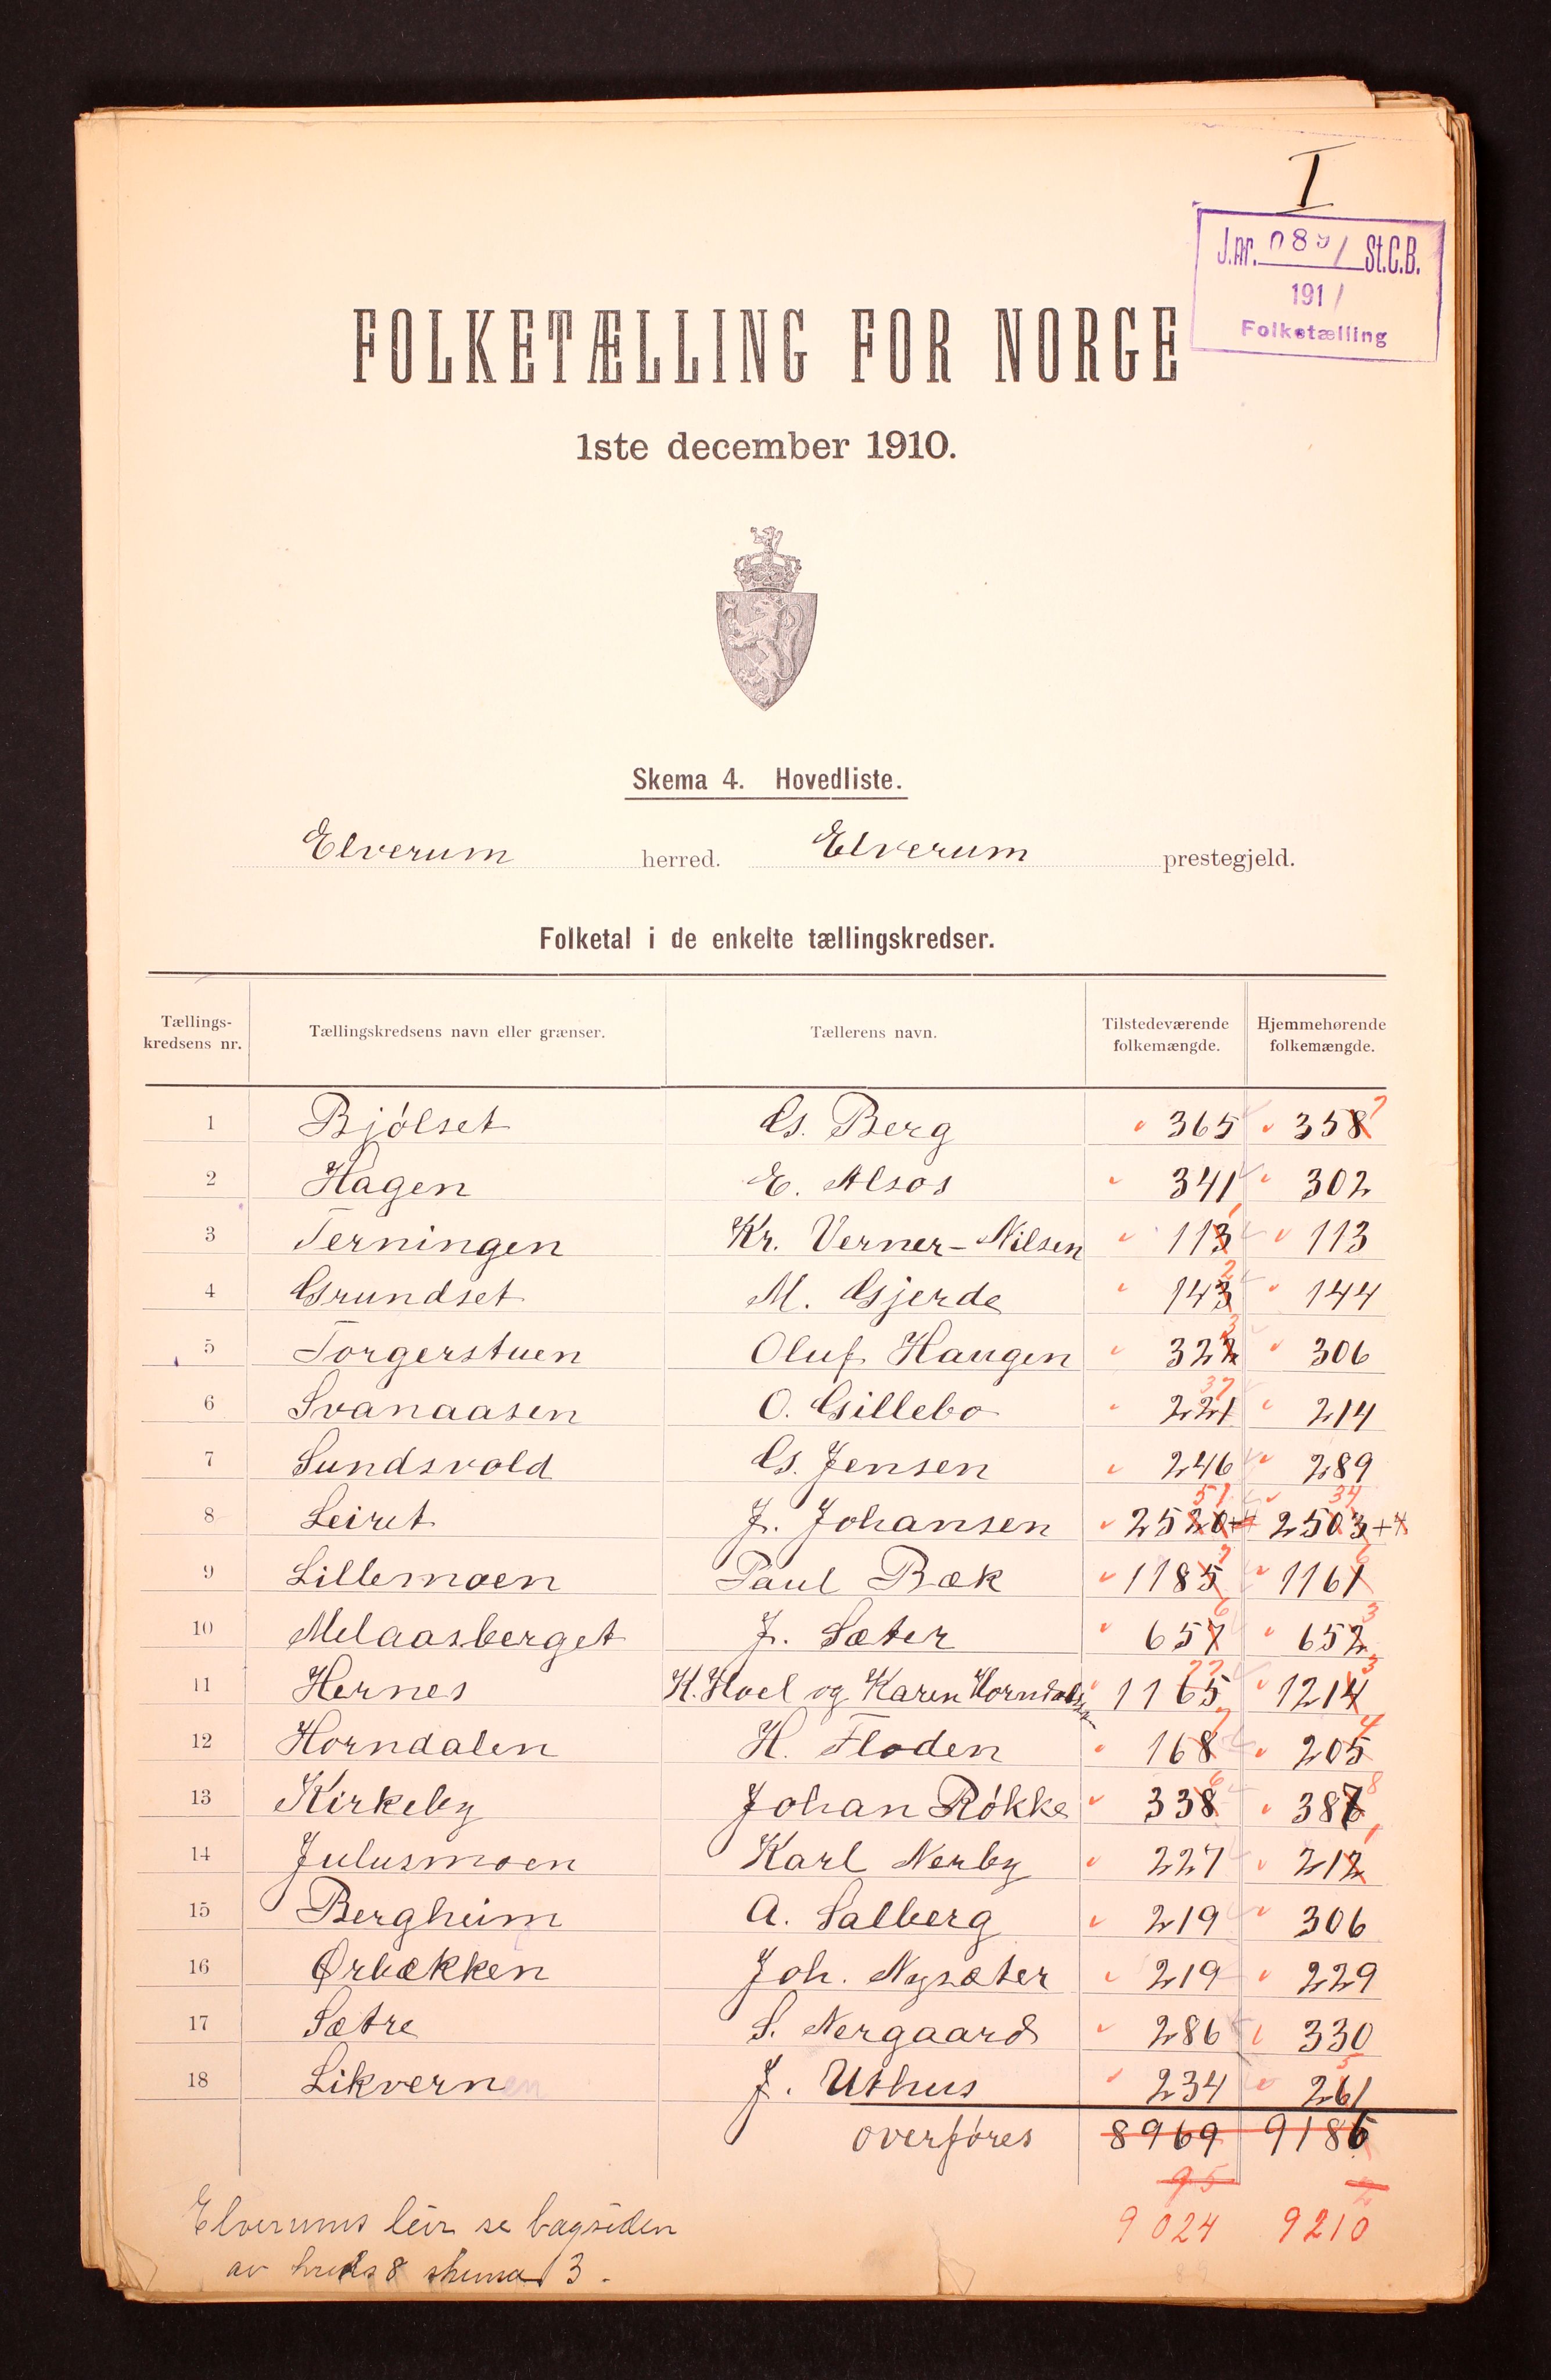 I
J.nr. 089/ St.C.B.
191 /
Folketælling
FOLKETÆLLING FOR NORGE
1ste december 1910.
Skema 4. Hovedliste.
Elverum herred. Elverum prestegjeld.
Folketal i de enkelte tællingskredser.
Tællings-kredsens nr. Tællingskredsens navn eller grænser. Tællerens navn. Tilstedeværende folkemængde. Hjemmehørende folkemængde.
1 Bjölset G. Berg 365 358 7
2 Hagen E. Alsos 341 302
3 Terningen Kr. Verner-Nilsen 113 1 113
4 Grundset M. Gjerde 143 2 144
5 Torgerstuen Oluf Haugen 322 3 306
6 Svanaasen O. Gillebo 221 37 214
7 Sundsvold G. Jensen 246 289
8 Leiret J. Johansen 2520+ 51 2503+4 34
9 Lillemoen Paul Bæk 1185 7 1161 6
10 Melaasberget J. Sæter 657 6 652 3
11 Hernes K. Hoel og Karen Horndalsen 1165 22 1214 3
12 Horndalen H. Floden 168 7 205 4
13 Kirkeby Johan Rökke 338 6 387 8
14 Julusmoen Karl Nerby 227 212 1
15 Bergheim A. Salberg 219 306
16 Ørbækken Joh. Nysæter 219 229
17 Sætre S. Nergaard 286 330
18 Likvernen J. Uthus 234 261 5
overföres 8969 9186
95 2
9024 9210
Elverums leir se bagsiden
av kreds 8 skema 3.